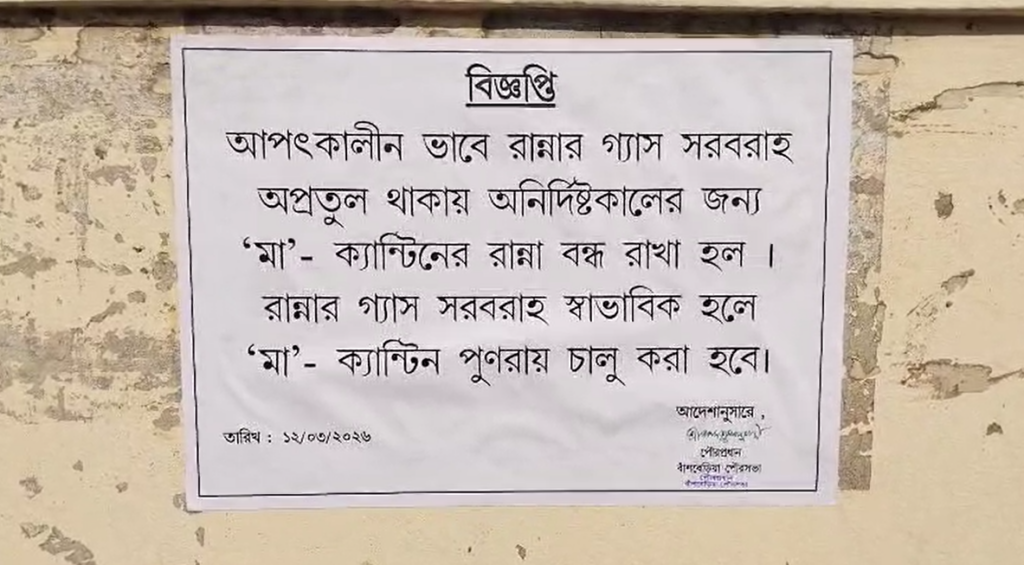 বিজ্ঞপ্তি
আপৎকালীন ভাবে রান্নার গ্যাস সরবরাহ
অপ্রতুল থাকায় অনির্দিষ্টকালের জন্য
‘মা’- ক্যান্টিনের রান্না বন্ধ রাখা হল ।
রান্নার গ্যাস সরবরাহ স্বাভাবিক হলে
‘মা’- ক্যান্টিন পুণরায় চালু করা হবে।
আদেশানুসারে ,
তারিখ : ১২/০৩/২০২৬
পৌরপ্রধান
বাঁশবেড়িয়া পৌরসভা
পৌরপ্রধান
বাঁশবেড়িয়া পৌরসভা